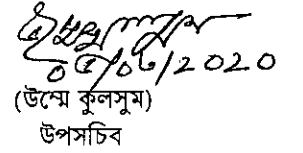 ০৫/০৩/2020
(উম্মে কুলসুম)
উপসচিব